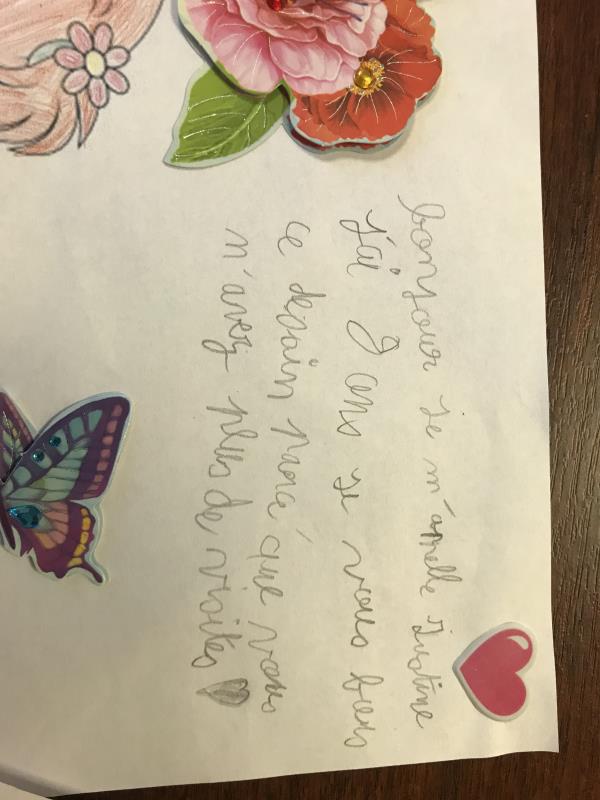 bonjour je m'appelle Justine
j'ai 9 ans je vous fais
ce desain parcé que vous
n'avez plus de visites